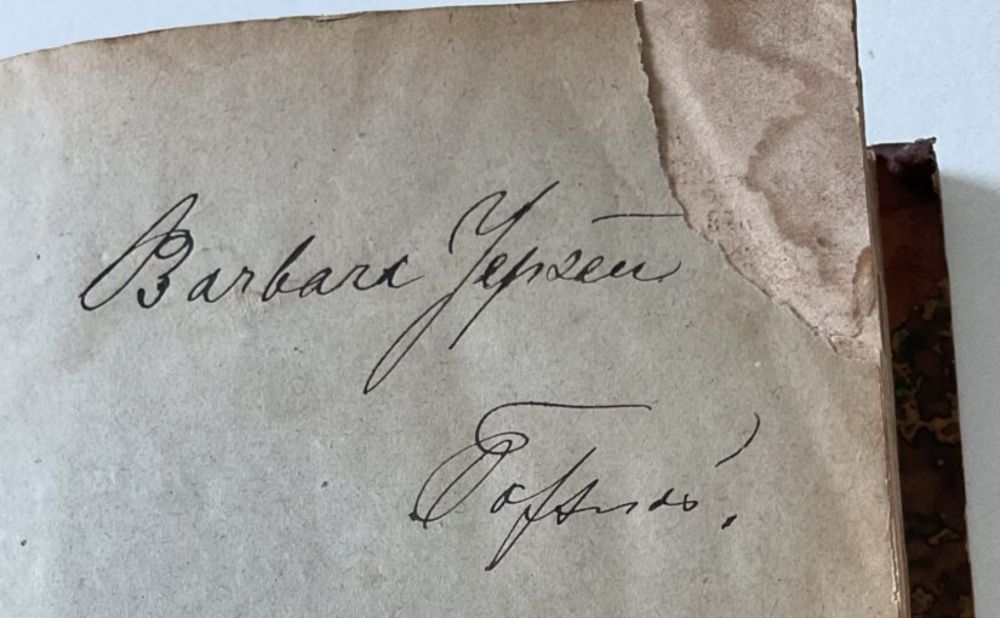 Barbara Jepsen
Toftnæs.